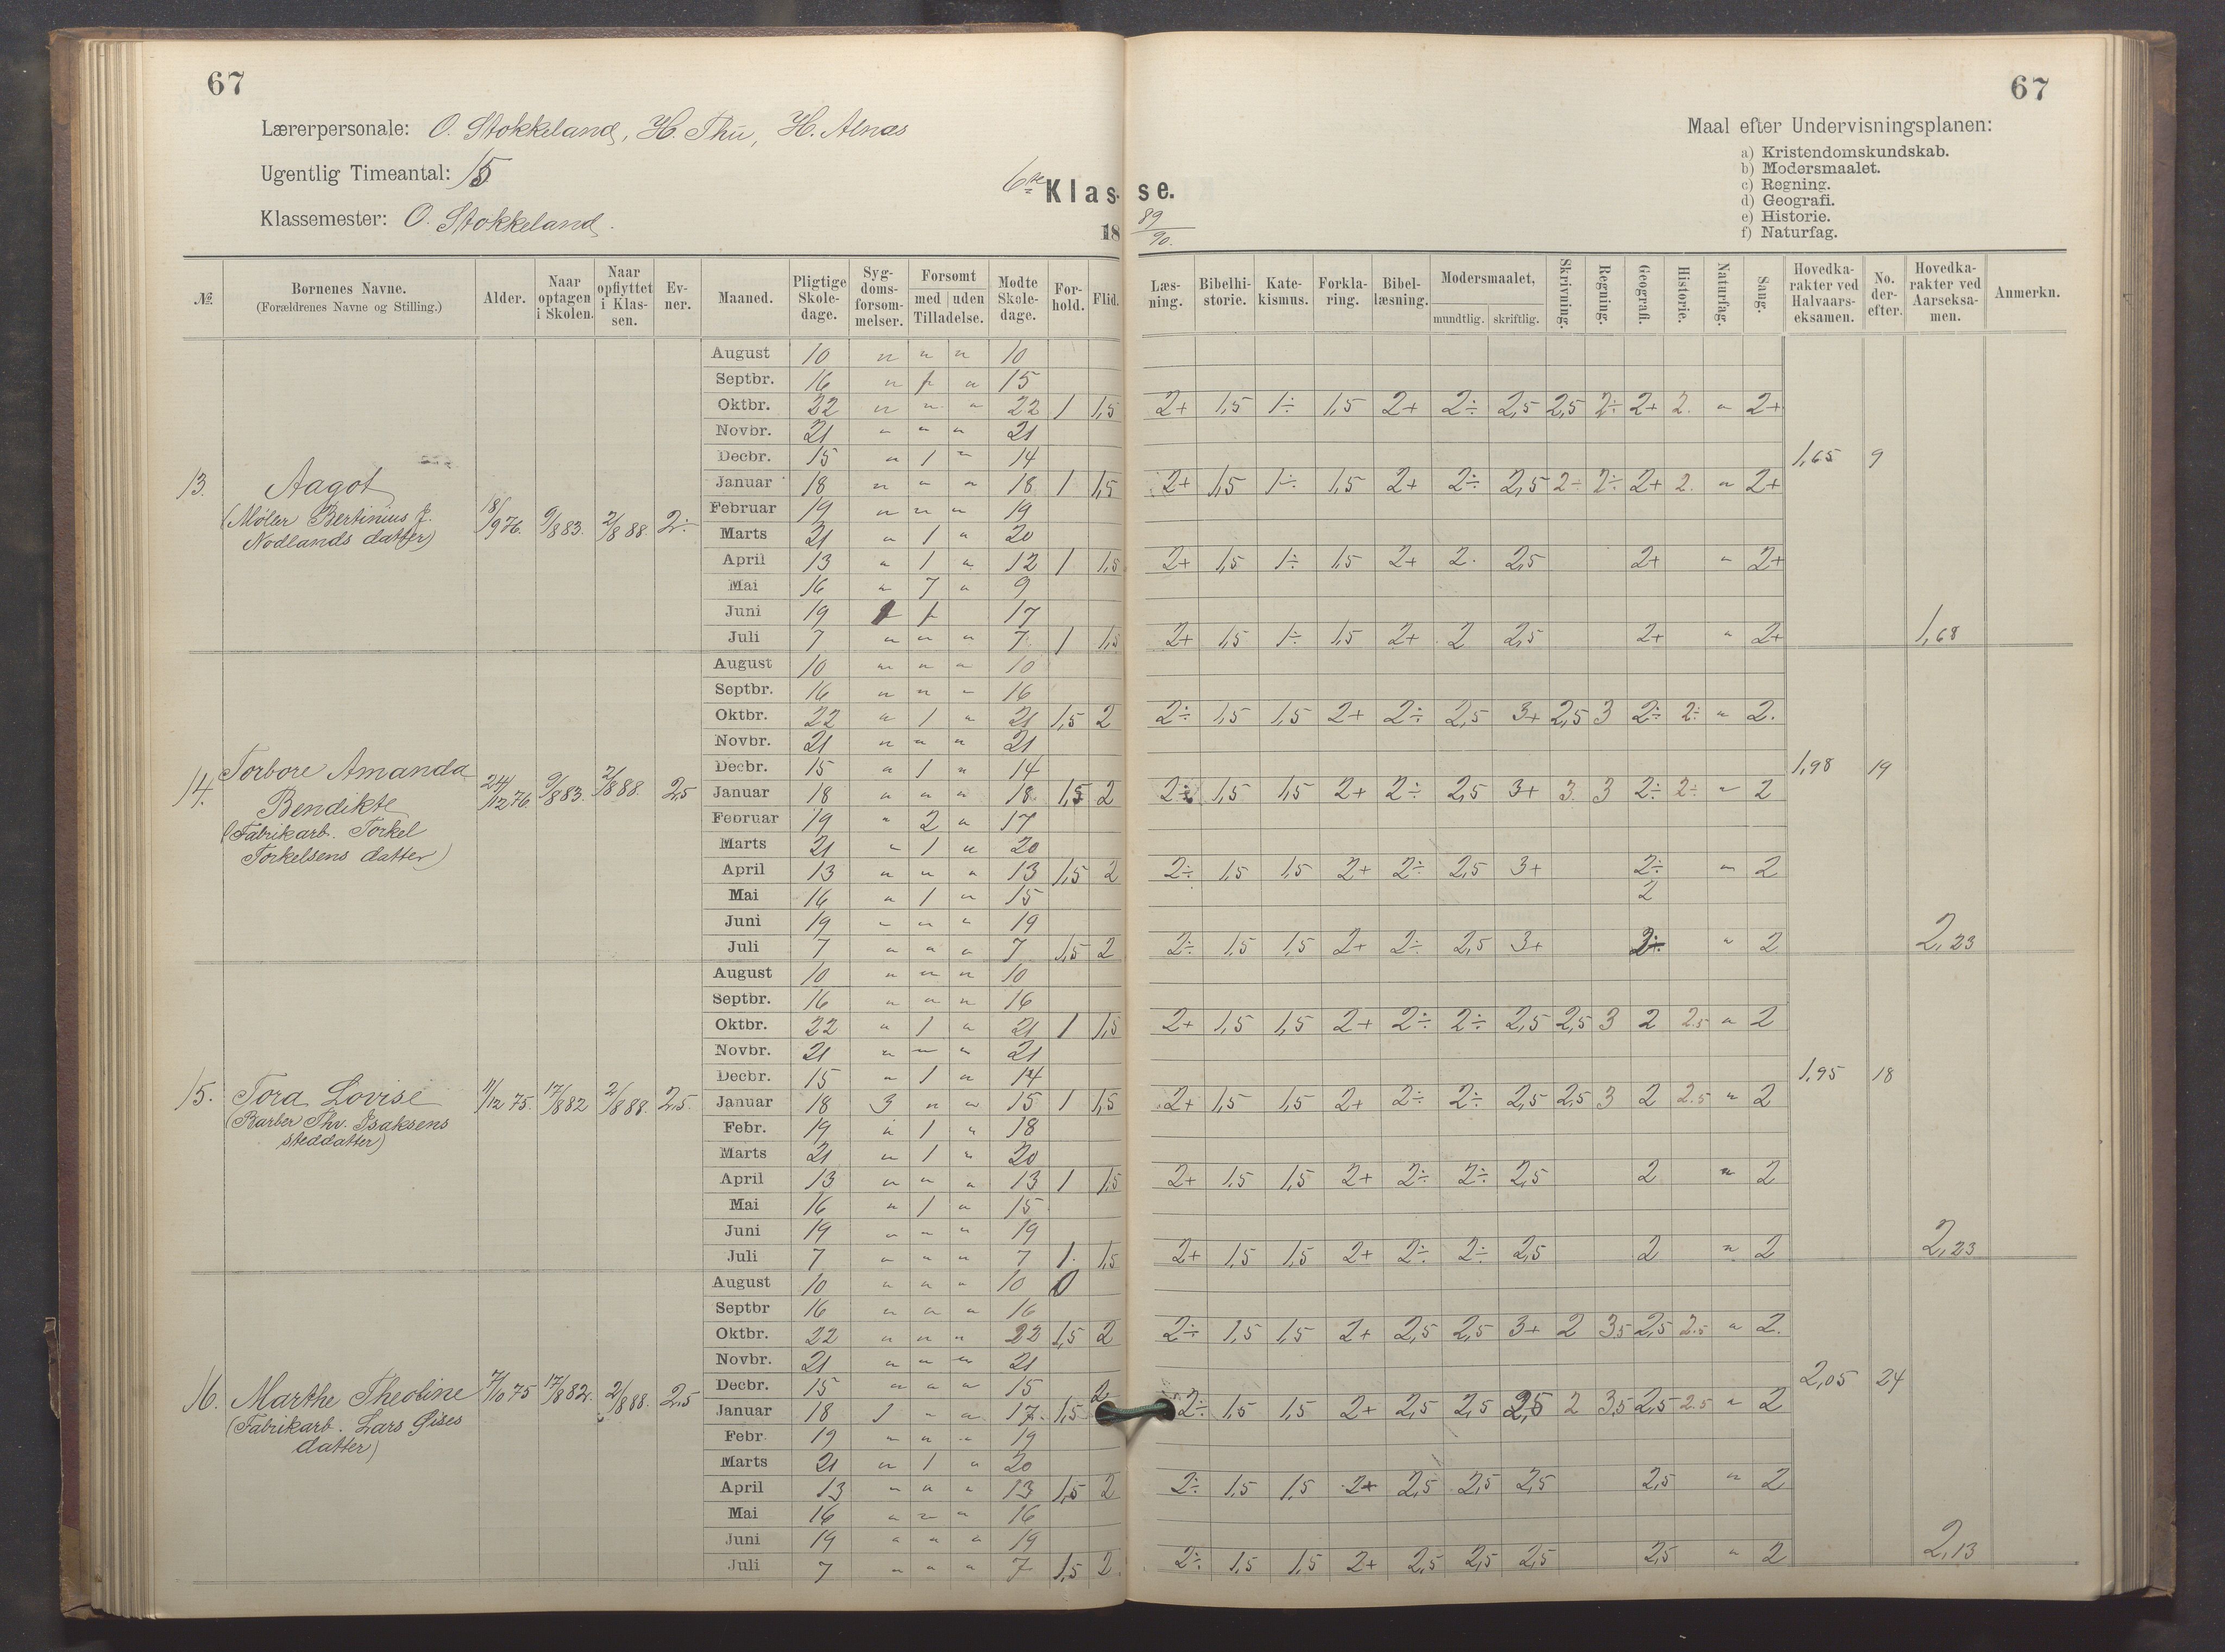 67
67
Lærerpersonale: O. Stokkeland, H. Thu, H. Alnæs
Maal efter Undervisningsplanen:
a) Kristendomskundskab.
b) Modersmaalet.
c) Regning.
d) Geografi.
e) Historie.
f) Naturfag.
Ugentlig Timeantal: 15
6te Klasse.
Klassemester: O. Stokkeland.
18 89/90.
№ | Børnenes Navne. (Forældrenes Navne og Stilling.) | Alder. | Naar optagen i Skolen. | Naar opflyttet i Klassen. | Evner. | Maaned. | Pligtige Skoledage. | Sygdomsforsømmelser. | Forsømt med Tilladelse. | uden Tilladelse. | Mødte Skoledage. | Forhold. | Flid. | Læsning. | Bibelhistorie. | Katekismus. | Forklaring. | Bibellæsning. | Modersmaalet, mundtlig. | skriftlig. | Skrivning. | Regning. | Geografi. | Historie. | Naturfag. | Sang. | Hovedkarakter ved Halvaarseksamen. | No. derefter. | Hovedkarakter ved Aarseksamen. | Anmerkn.
13. Aagot
(Møler Bertinius J.
Nodlands datter)
18/9 76. 9/8 83. 2/8 88. 2÷
August 10 " " " 10
Septbr. 16 " 1 " 15
Oktbr. 22 " " " 22 1 1,5 2+ 1,5 1÷ 1,5 2+ 2÷ 2,5 2,5 2÷ 2+ 2. " 2+
Novbr. 21 " " " 21
Decbr. 15 " 1 " 14 1,65 9
Januar 18 " " " 18 1 1,5 2+ 1,5 1÷ 1,5 2+ 2÷ 2,5 2÷ 2÷ 2+ 2. " 2+
Februar 19 " " " 19
Marts 21 " 1 " 20
April 13 " 1 " 12 1 1,5 2+ 1,5 1÷ 1,5 2+ 2. 2,5 2+ " 2+
Mai 16 " 7 " 9
Juni 19 1 1 17
Juli 7 " " " 7 1 1,5 2+ 1,5 1÷ 1,5 2+ 2 2,5 2+ " 2+ 1,68
14. Torbore Amanda
Bendikte
(Fabrikarb. Torkel
Torkelsens datter)
24/12 76. 9/8 83. 2/8 88. 2,5
August 10 " " " 10
Septbr. 16 " " " 16
Oktbr. 22 " 1 " 21 1,5 2 2÷ 1,5 1,5 2+ 2÷ 2,5 3+ 2,5 3 2÷ 2÷ " 2.
Novbr. 21 " " " 21
Decbr. 15 " 1 " 14 1,98 19
Januar 18 " " " 18 1,5 2 2÷ 1,5 1,5 2+ 2÷ 2,5 3+ 3. 3 2÷ 2÷ " 2
Februar 19 " 2 " 17
Marts 21 " 1 " 20
April 13 " " " 13 1,5 2 2÷ 1,5 1,5 2+ 2÷ 2,5 3+ 2÷ " 2
Mai 16 " 1 " 15 2
Juni 19 " " " 19
Juli 7 " " " 7 1,5 2 2÷ 1,5 1,5 2+ 2÷ 2,5 3+ 2÷ " 2 2,23
15. Tora Lovise
(Barber Thv. Isaksens
steddatter)
11/12 75. 17/8 82 2/8 88. 2,5.
August 10 " " " 10
Septbr. 16 " " " 16
Oktbr. 22 " 1 " 21 1 1,5 2+ 1,5 1,5 2+ 2÷ 2÷ 2,5 2,5 3 2 2.5 " 2
Novbr. 21 " " " 21
Decbr. 15 " 1 " 14 1,95 18
Januar 18 3 " " 15 1 1,5 2+ 1,5 1,5 2+ 2÷ 2÷ 2,5 2,5 3 2 2.5 " 2
Febr. 19 " 1 " 18
Marts 21 " 1 " 20
April 13 " " " 13 1 1,5 2+ 1,5 1,5 2+ 2÷ 2÷ 2,5 2 " 2
Mai 16 " 1 " 15
Juni 19 " " " 19
Juli 7 " " " 7 1. 1,5 2+ 1,5 1,5 2+ 2÷ 2÷ 2,5 2 " 2 2,23
16. Marthe Theoline
(Fabrikarb. Lars Gises
datter)
7/10 75 17/8 82. 2/8 88. 2,5
August 10 " " " 10 0
Septbr 16 " " " 16
Oktbr. 22 " " " 22 1,5 2 2÷ 1,5 1,5 2+ 2,5 2,5 3+ 2 3,5 2,5 2.5 " 2.
Novbr. 21 " " " 21
Decbr. 15 " " " 15 2,05 24
Januar 18 1 " " 17. 1,5 2 2÷ 1,5 1,5 2+ 2,5 2,5 2,5 2 3,5 2,5 2.5 " 2
Febr. 19 " " " 19
Marts 21 " 1 " 20
April 13 " " " 13 1,5 2 2÷ 1,5 1,5 2+ 2,5 2,5 2,5 2,5 " 2
Mai 16 " " " 16
Juni 19 " " " 19
Juli 7 " " " 7 1,5 2. 2÷ 1,5 1,5 2+ 2,5 2,5 2,5 2,5 " 2 2,13